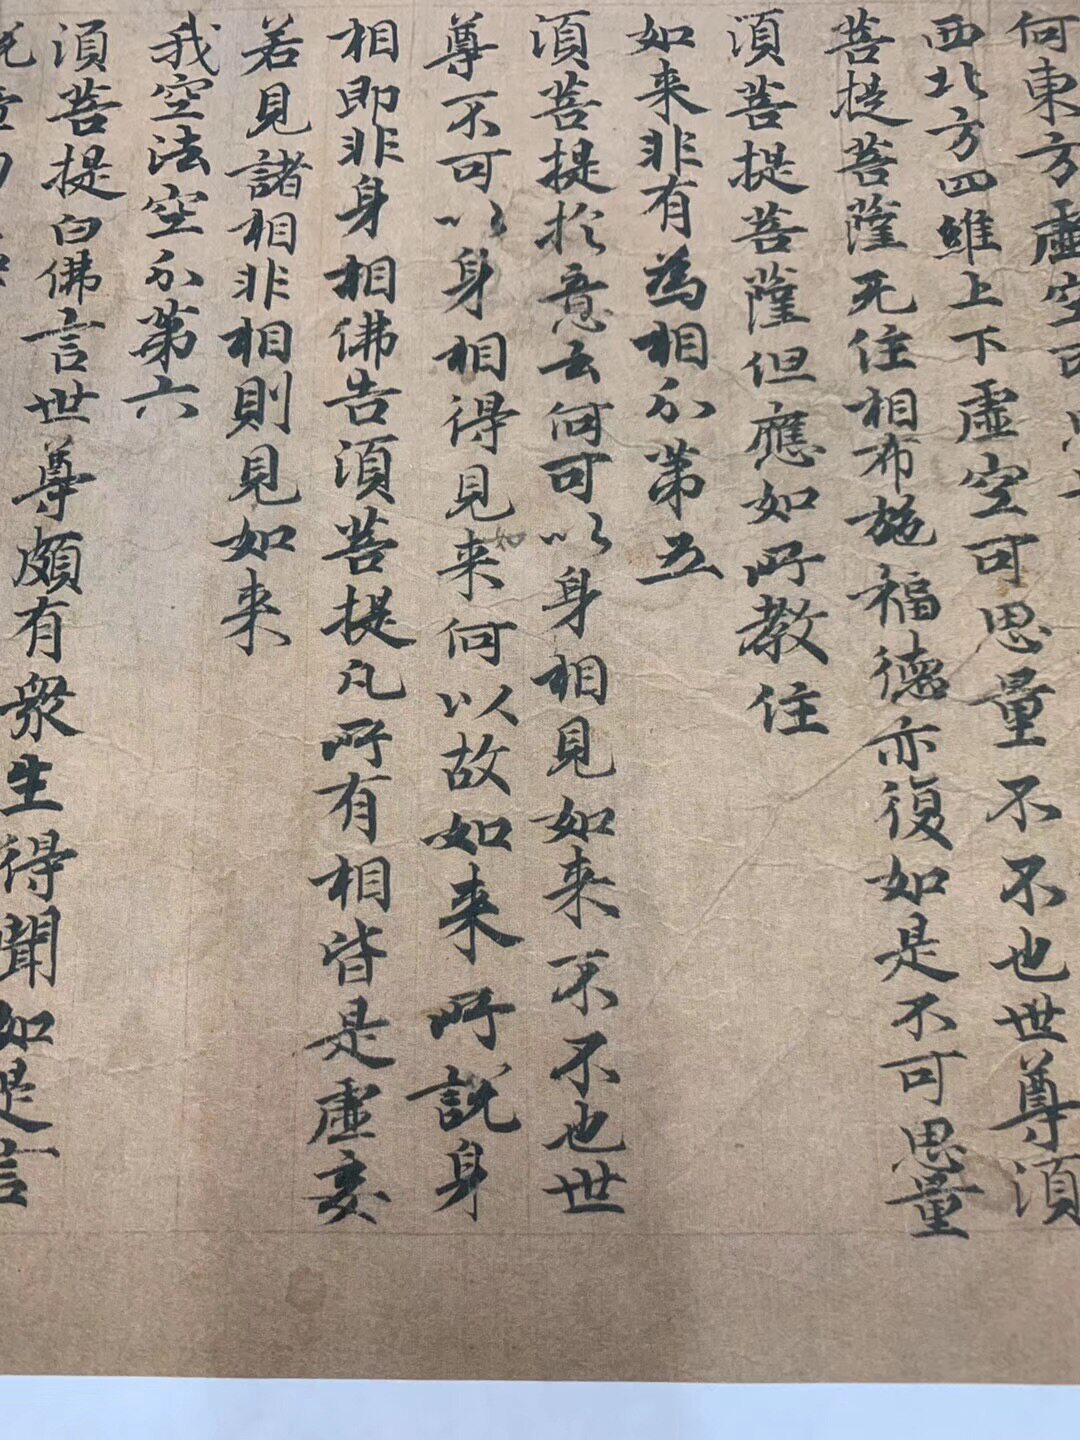 何東方虛空可思量不不也世尊須
西北方四維上下虛空可思量不不也世尊須
菩提菩薩无住相布施福德亦復如是不可思量
須菩提菩薩但應如所教住
如来非有為相分第五
須菩提扵意云何可以身相見如来不不也世
尊不可以身相得見如来何以故如来所說身
相即非身相佛告須菩提凡所有相皆是虛妄
若見諸相非相則見如来
我空法空分第六
須菩提白佛言世尊頗有衆生得聞如是言